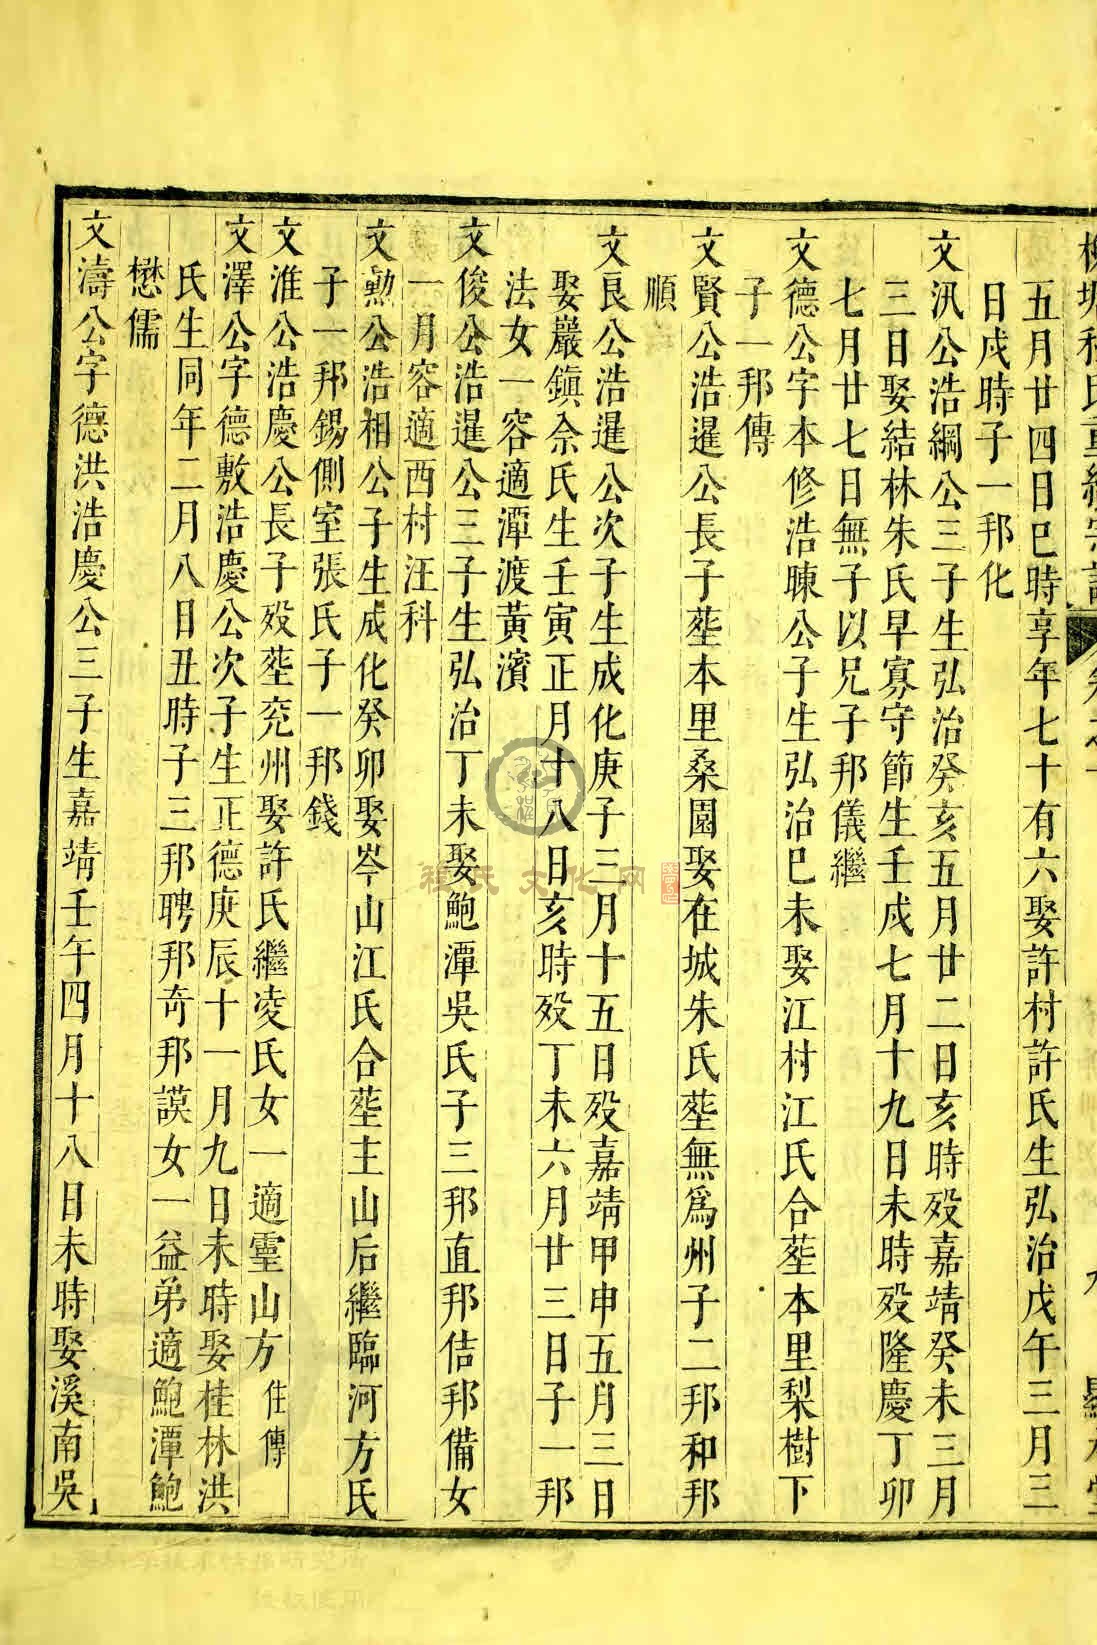 五月廿四日巳時享年七十有六娶許村許氏生弘治戊午三月三
日戌時子一邦化
文汛公浩綱公三子生弘治癸亥五月廿二日亥時殁嘉靖癸未三月
三日娶結林朱氏早寡守節生壬戌七月十九日未時殁隆慶丁卯
七月廿七日無子以兄子邦儀繼
文德公字本修浩暕公子生弘治巳未娶江村江氏合塟本里梨樹下
子一邦傳
文賢公浩暹公長子塟本里桑園娶在城朱氏塟無爲州子二邦和邦
順
文良公浩暹公次子生成化庚子三月十五日殁嘉靖甲申五月三日
娶巖鎮佘氏生壬寅正月十八日亥時殁丁未六月廿三日子一邦
法女一容適潭渡黃濱
文俊公浩暹公三子生弘治丁未娶鮑潭吳氏子三邦直邦佶邦備女
一月容適西村汪科
文勲公浩相公子生成化癸卯娶岑山江氏合塟主山后繼臨河方氏
子一邦錫側室張氏子一邦錢
文淮公浩慶公長子殁塟兖州娶許氏繼凌氏女一適靈山方仕傳
文澤公字德敷浩慶公次子生正德庚辰十一月九日未時娶桂林洪
氏生同年二月八日丑時子三邦聘邦奇邦謨女一益弟適鮑潭鮑
懋儒
文濤公字德洪浩慶公三子生嘉靖壬午四月十八日未時娶溪南吳
程氏文化网